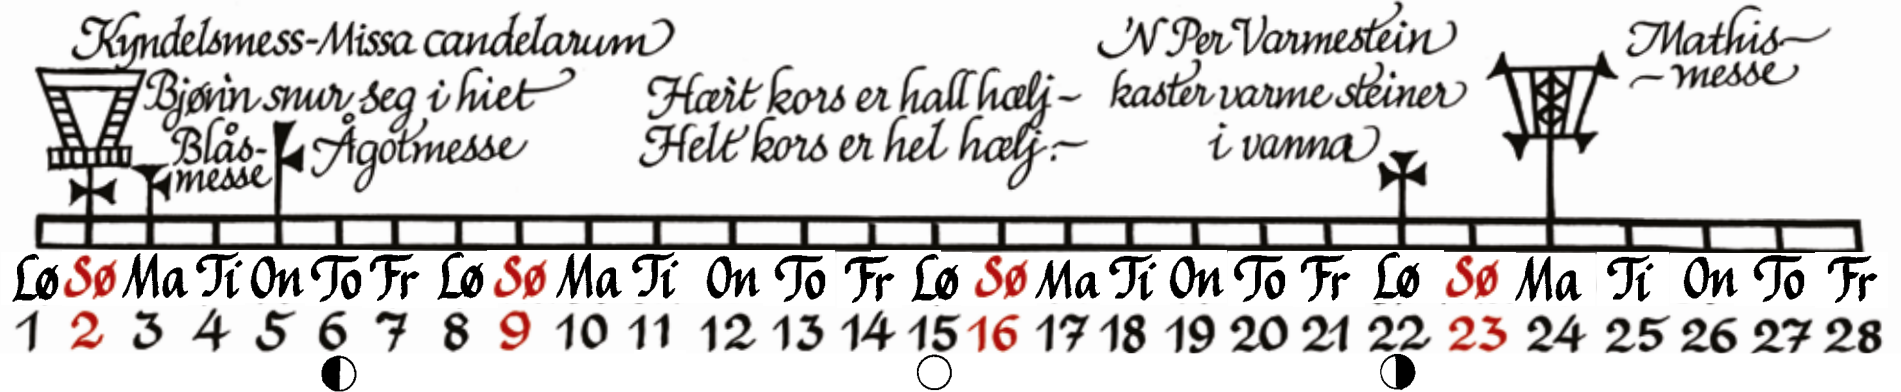 Kyndelsmess-Missa candelarum
Bjønn snur seg i hiet
Blås-
messe
Ågotmesse
Hært kors er hall hælj-
Helt kors er hel hælj.-
'N Per Varmestein
kaster varme steiner
i vanna
Mathis-
-messe
Lø Sø Ma Ti On To Fr Lø Sø Ma Ti On To Fr Lø Sø Ma Ti On To Fr Lø Sø Ma Ti On To Fr
1 2 3 4 5 6 7 8 9 10 11 12 13 14 15 16 17 18 19 20 21 22 23 24 25 26 27 28